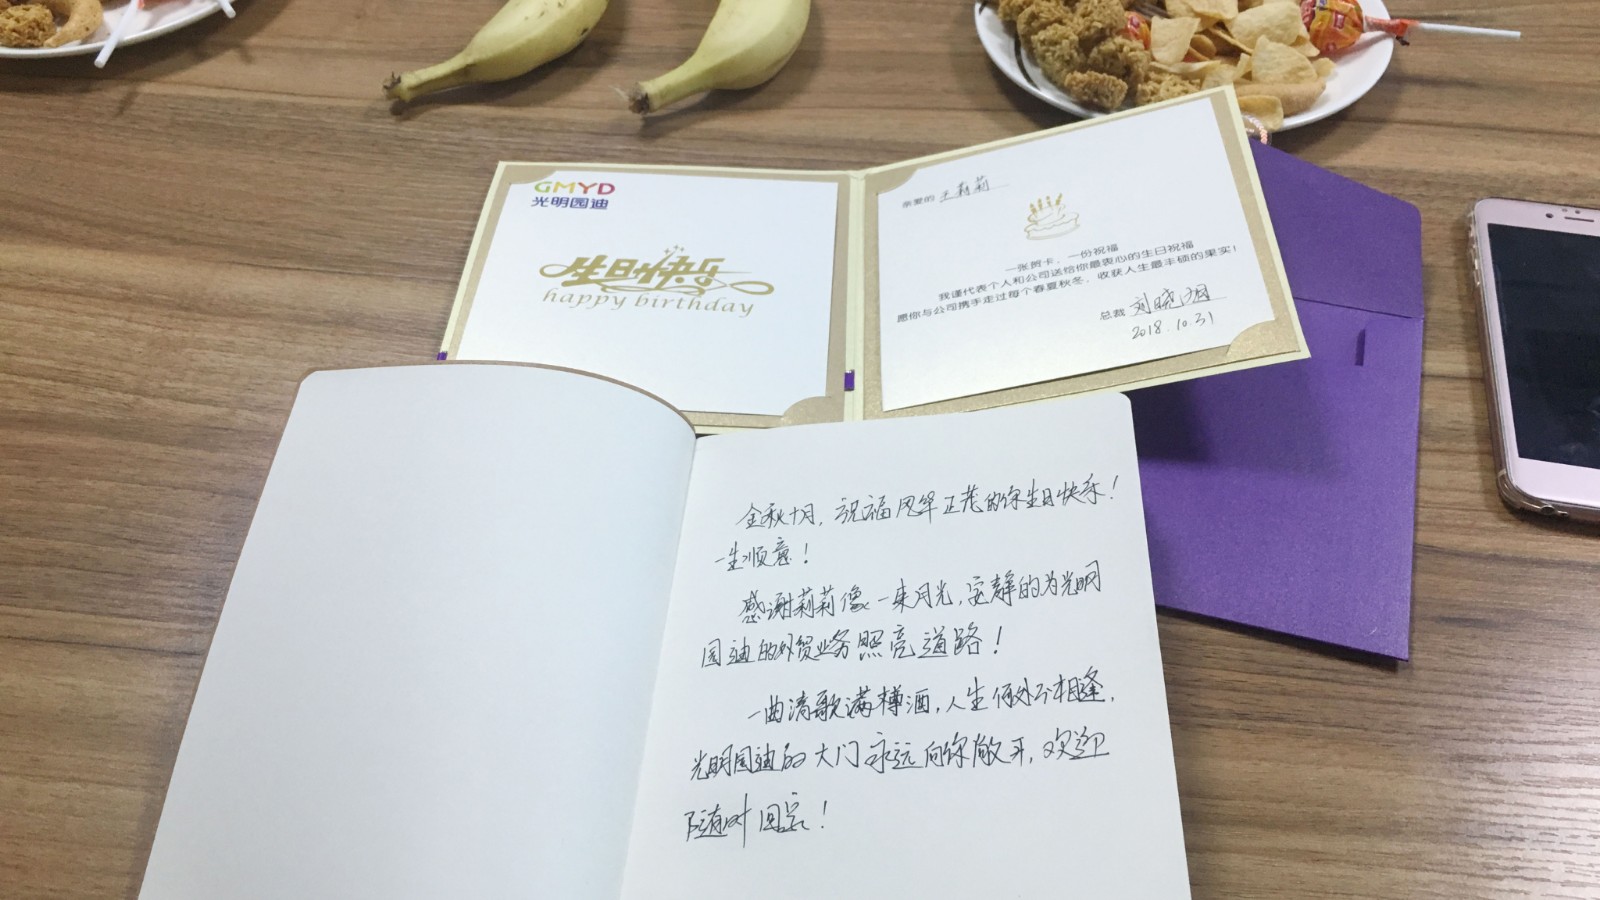 GMYD
光明园迪
生日快乐
happy birthday
亲爱的 王莉莉
一张贺卡，一份祝福
我谨代表个人和公司送给你最衷心的生日祝福
愿你与公司携手走过每个春夏秋冬，收获人生最丰硕的果实！
总裁 刘晓
2018.10.31
金秋十月，祝福风华正茂的你生日快乐！
一生顺意！
感谢莉莉像一束月光，安静的为光明
园迪的外贸业务照亮道路！
一曲清歌满樽酒，人生何处不相逢，
光明园迪的大门永远向你敞开，欢迎
随时回家！